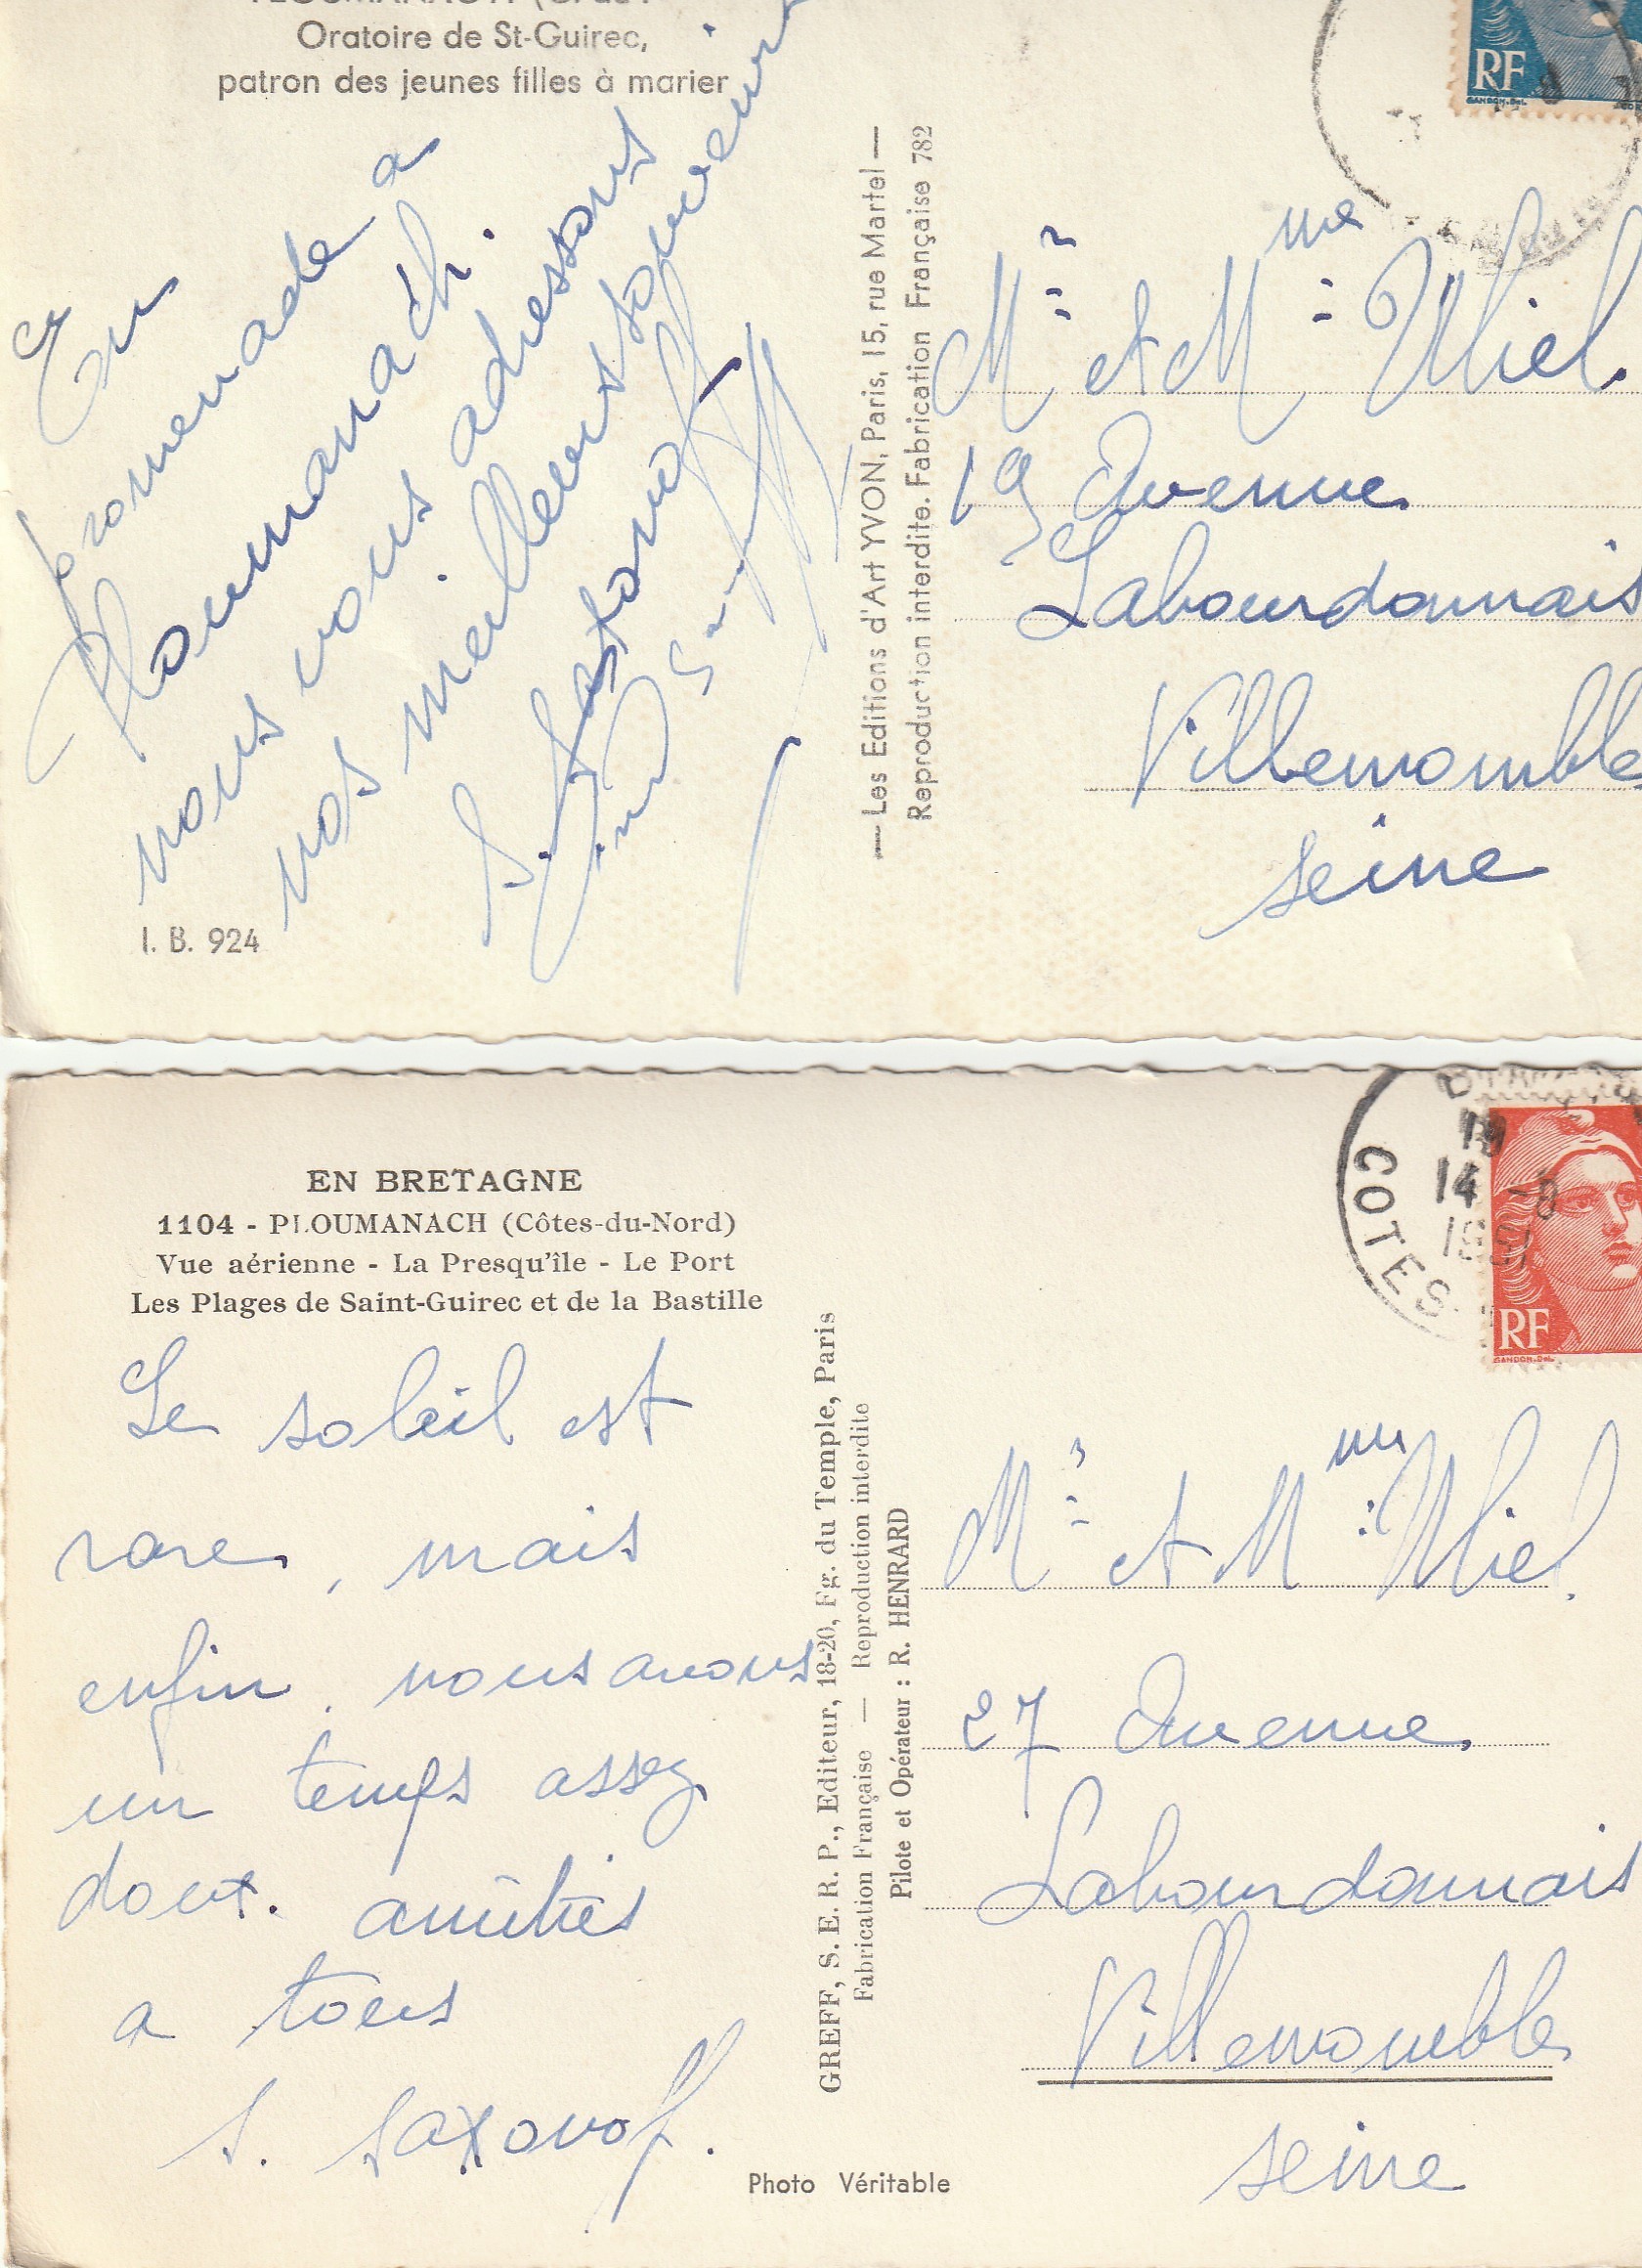 Oratoire de St-Guirec,
patron des jeunes filles à marier
En
promenade à
Ploumanach.
nous vous adressons
nos meilleurs souvenirs
S. Saxonoff
I. B. 924
— Les Editions d'Art YVON, Paris, 15, rue Martel —
Reproduction interdite. Fabrication Française 782
RF
GANDON.Del.
Mr et Mme Miel.
19 Avenue
Labourdonnais
Villemomble
Seine
EN BRETAGNE
1104 - PLOUMANACH (Côtes-du-Nord)
Vue aérienne - La Presqu'île - Le Port
Les Plages de Saint-Guirec et de la Bastille
Le soleil est
rare, mais
enfin, nous avons
un temps assez
doux. amitiés
a tous
S. Saxonoff.
GREFF, S. E. R. P., Editeur, 18-20, Fg. du Temple, Paris
Fabrication Française — Reproduction interdite
Pilote et Opérateur : R. HENRARD
Photo Véritable
COTES
14 -8
RF
GANDON.Del.
Mr et Mme Miel.
27 Avenue
Labourdonnais
Villemomble
Seine